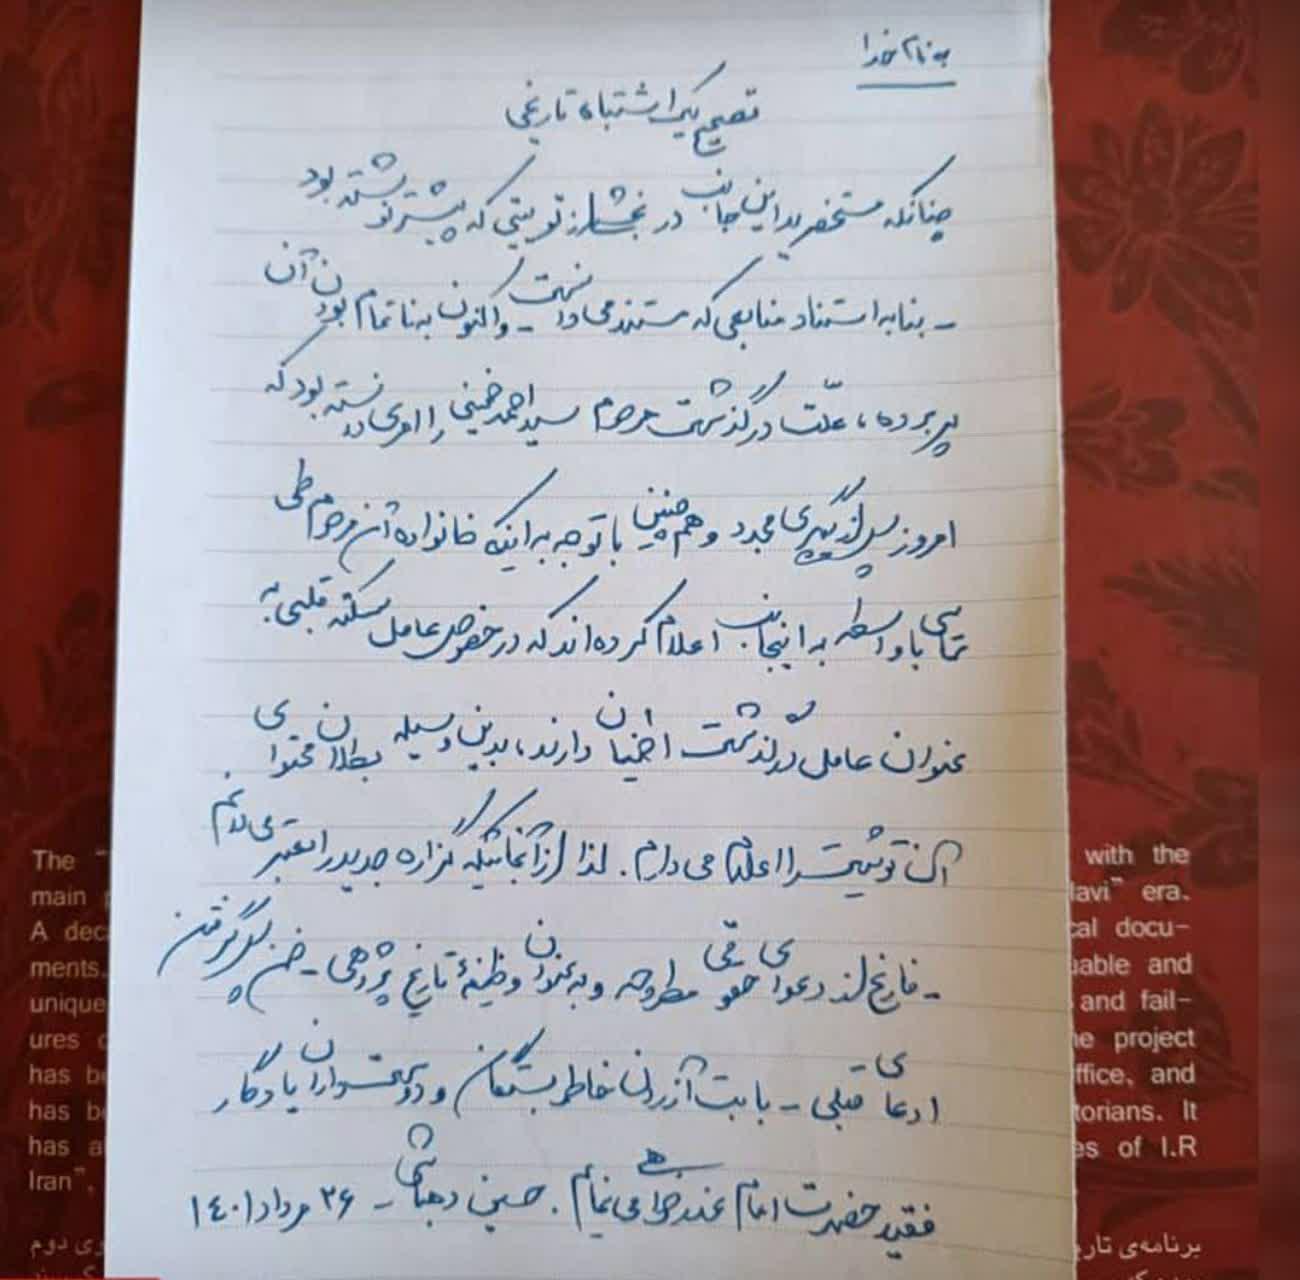 به نام خدا
تصحیح یک اشتباه تاریخی
چنانکه مستحضرید این جانب در بخشی از توییتی که پیشتر نوشته بود
- بنا به استناد منابعی که مستند می دانست - و اکنون به ناتمام بودن آن
پی برده، علّت درگذشت مرحوم سید احمد خمینی را امری دانسته بود که
امروز پس از پیگیری مجدد و هم چنین با توجه به اینکه خانواده آن مرحوم طی
تماسی با واسطه به اینجانب اعلام کرده اند که در خصوص عامل سکته قلبی به
عنوان عامل درگذشت اطمینان دارند، بدین وسیله بطلان محتوای
آن توئیت را اعلام می دارم. لذا از آنجائیکه گزاره جدید را معتبر می دانم
- فارغ از دعوای حقوقی مطروحه و به عنوان وظیفهٔ تاریخ پژوهی - ضمن پس گرفتن
ادعای قبلی - بابت آزردن خاطر بستگان و دوستداران یادگار
فقید حضرت امام عذرخواهی می نمایم. حسین دهباشی - ۲۶ مرداد ۱۴۰۱
The "
with the
main p
lavi" era.
A dec
cal docu-
ments.
uable and
unique
and fail-
ures o
he project
has be
ffice, and
has be
torians. It
has a
es of I.R
Iran".
برنامه‌ی تاری
وی دوم